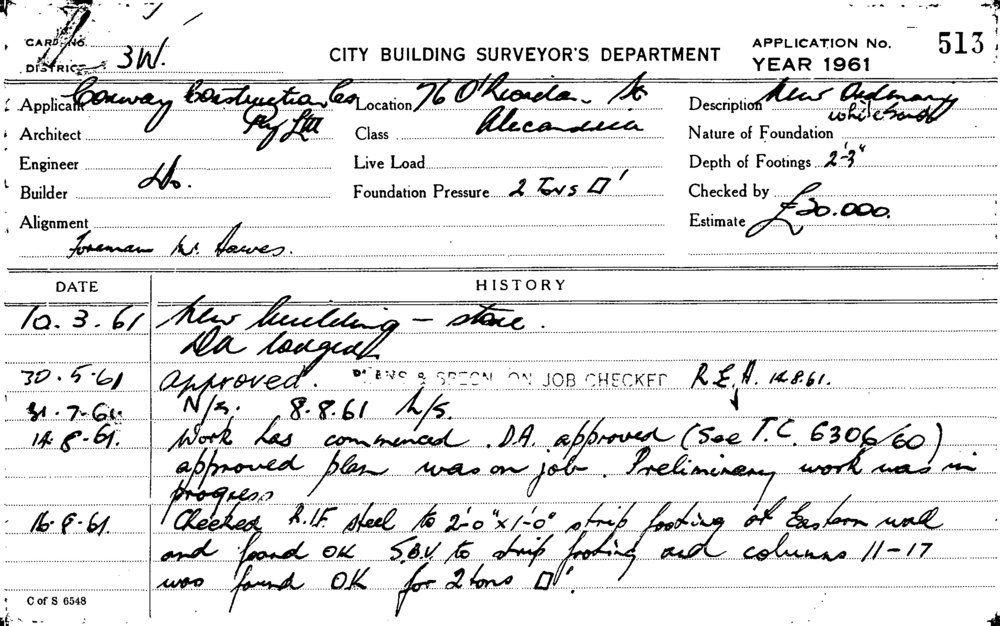 CARD No.
DISTRICT 3W.
CITY BUILDING SURVEYOR'S DEPARTMENT
APPLICATION No. 513
YEAR 1961
Applicant Conway Construction Co
Pty Ltd
Location 76 O'Riordan St
Alexandria
Description New Ordinary
white sand
Architect
Class
Nature of Foundation
Engineer
Live Load
Depth of Footings 2'-3"
Builder Do.
Foundation Pressure 2 Tons □'
Checked by
Alignment
Estimate £20.000.
Foreman Mr. Hawes.
DATE HISTORY
10.3.61 New building – store.
DA lodged
30.5.61 approved. PLANS & SPECN. ON JOB CHECKED R.E.H. 14.8.61.
31.7.61. N/s. 8.8.61 N/s.
14.8.61. Work has commenced. D.A. approved (See T.C. 6306/60)
approved plan was on job. Preliminary work was in
progress
16.8.61. Checked R.I.F. steel to 2'-0"x1'-0" strip footing at Eastern wall
and found OK S.B.V. to strip footing and columns 11-17
was found OK for 2 tons □'.
C of S 6548